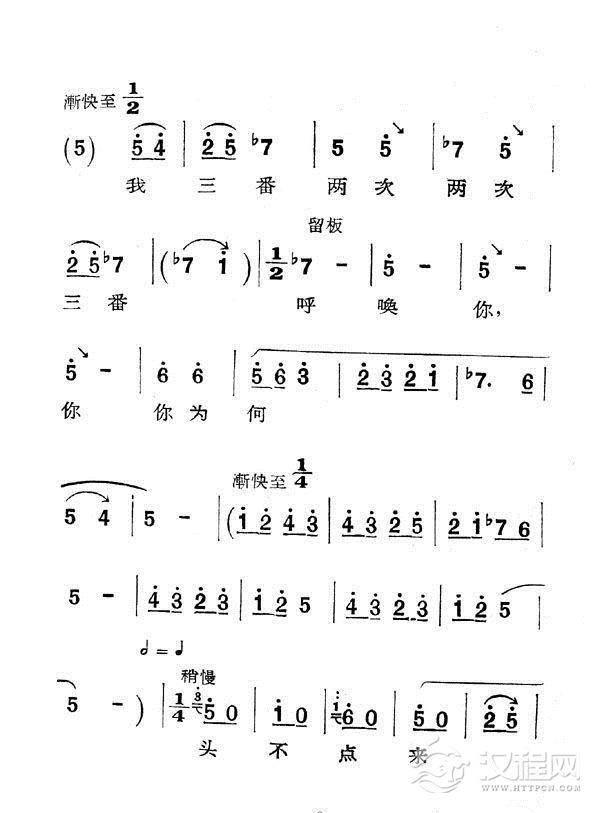 漸快至 1/2
(5) 5 4 | 2 5 ♭7 | 5 5↘ | ♭7 5↘ |
我 三 番 两 次 两 次
留板
2 5 ♭7 | (♭7 i) | 1/2 ♭7 - | 5 - | 5↘ - |
三 番 呼 喚 你，
5↘ - | 6 6 | 5 6 3 | 2 3 2 1 | ♭7. 6 |
你 你 为 何
漸快至 1/4
5 4 | 5 - | (1 2 4 3 | 4 3 2 5 | 2 1 ♭7 6 |
5 - | 4 3 2 3 | 1 2 5 | 4 3 2.3 | 1 2 5 |
𝅗𝅥 = ♩
稍慢
5 - ) | 1/4 5 0 | 1 0 | 6 0 | 5 0 | 2 5 |
头 不 点 来
汉程网
WWW.HTTPCN.COM